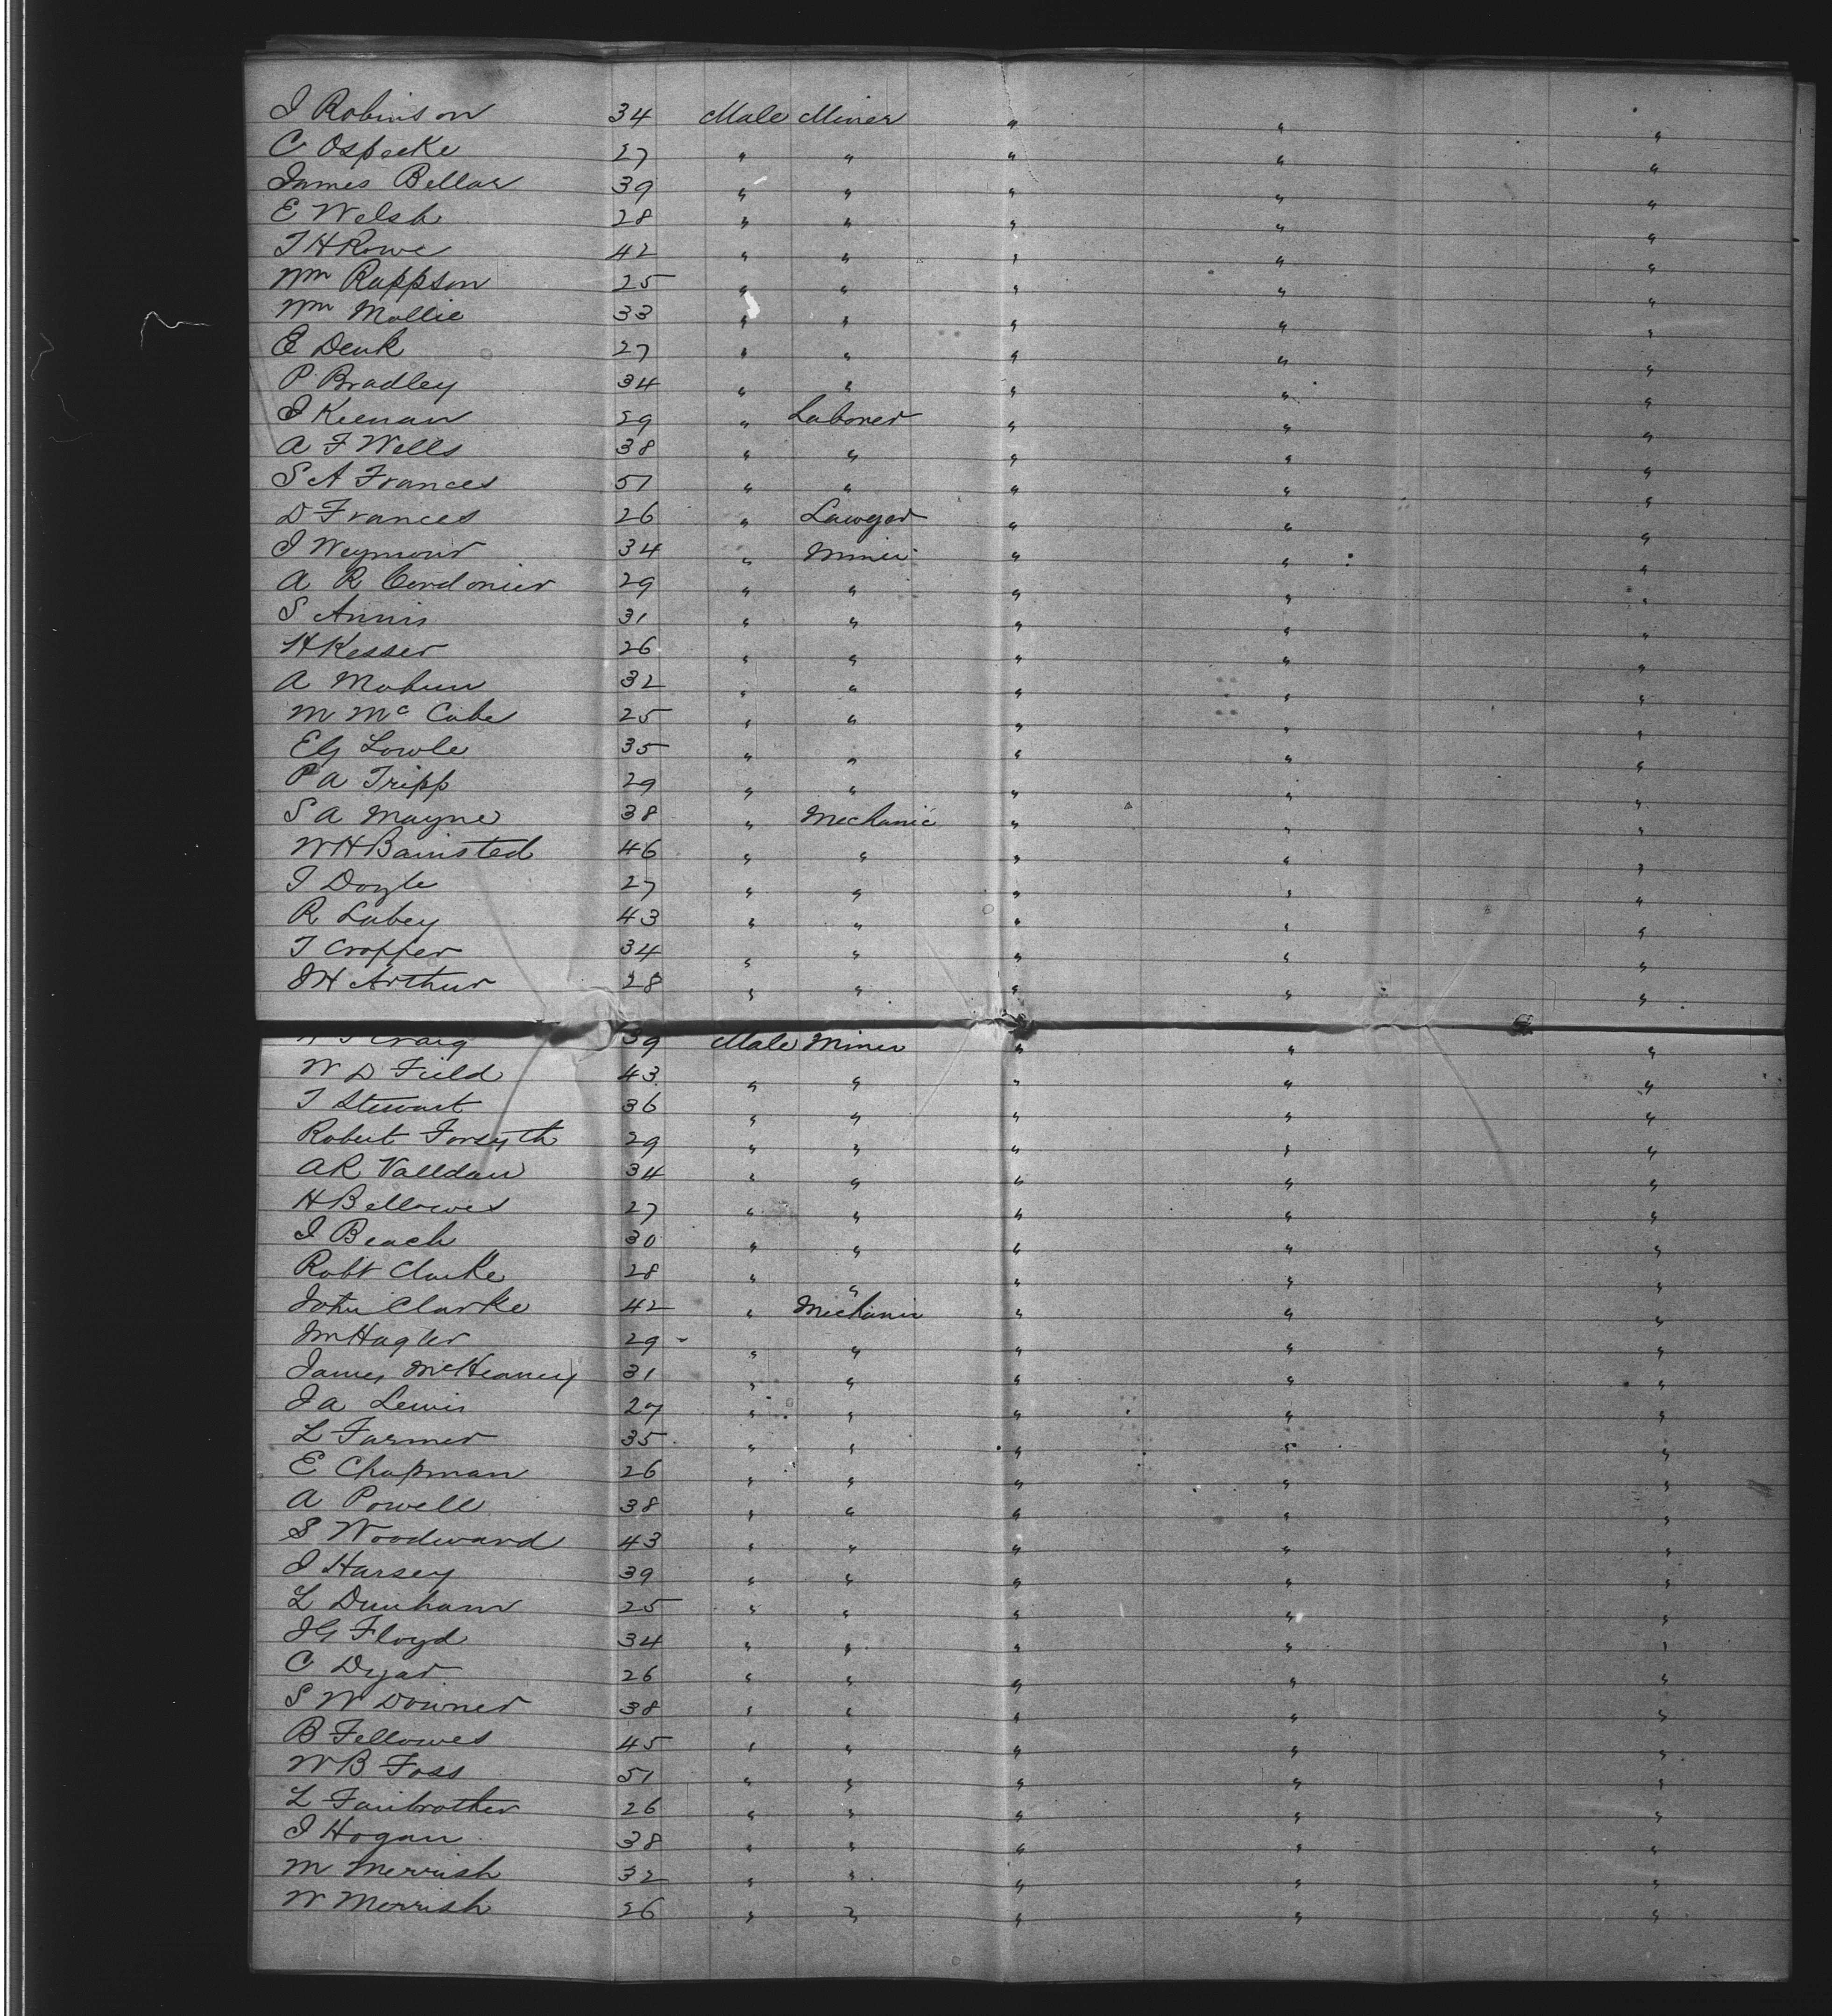 J Robinson 34 Male Miner " " "
C Ospecke 27 " " " " "
James Bellar 39 " " " " "
E Welsh 28 " " " " "
T H Rowe 42 " " " " "
Wm Rappson 25 " " " " "
Wm Mollie 33 " " " " "
E Denk 27 " " " " "
P Bradley 34 " " " " "
J Keenan 29 " Laborer " " "
A F Wells 38 " " " " "
S A Frances 51 " " " " "
D Frances 26 " Lawyer " " "
J Weymour 34 " Miner " " "
A R Cordonier 29 " " " " "
S Annis 31 " " " " "
H Kesser 26 " " " " "
A Mabun 32 " " " " "
M Mc Cabe 25 " " " " "
EG Lowle 35 " " " " "
P A Tripp 29 " " " " "
S A Mayne 38 " Mechanic " " "
W H Bainsted 46 " " " " "
T Doyle 27 " " " " "
R Labey 43 " " " " "
T Cropper 34 " " " " "
J H Arthur 28 " " " " "
Craig 39 Male Miner " " "
W D Field 43 " " " " "
T Stewart 36 " " " " "
Robert Forsyth 29 " " " " "
A R Valldan 34 " " " " "
H Bellowes 27 " " " " "
J Beach 30 " " " " "
Robt Clarke 28 " " " " "
John Clarke 42 " Mechanic " " "
J M Hagler 29 " " " " "
James McHeaney 31 " " " " "
J A Lewis 27 " " " " "
L Farmer 35 " " " " "
E Chapman 26 " " " " "
A Powell 38 " " " " "
S Woodward 43 " " " " "
J Harsey 39 " " " " "
L Dunham 25 " " " " "
J G Floyd 34 " " " " "
C Dyar 26 " " " " "
S W Downer 38 " " " " "
B Fellowes 45 " " " " "
W B Foss 51 " " " " "
L Fairbrother 26 " " " " "
J Hogan 38 " " " " "
M Merrish 32 " " " " "
W Merrish 26 " " " " "